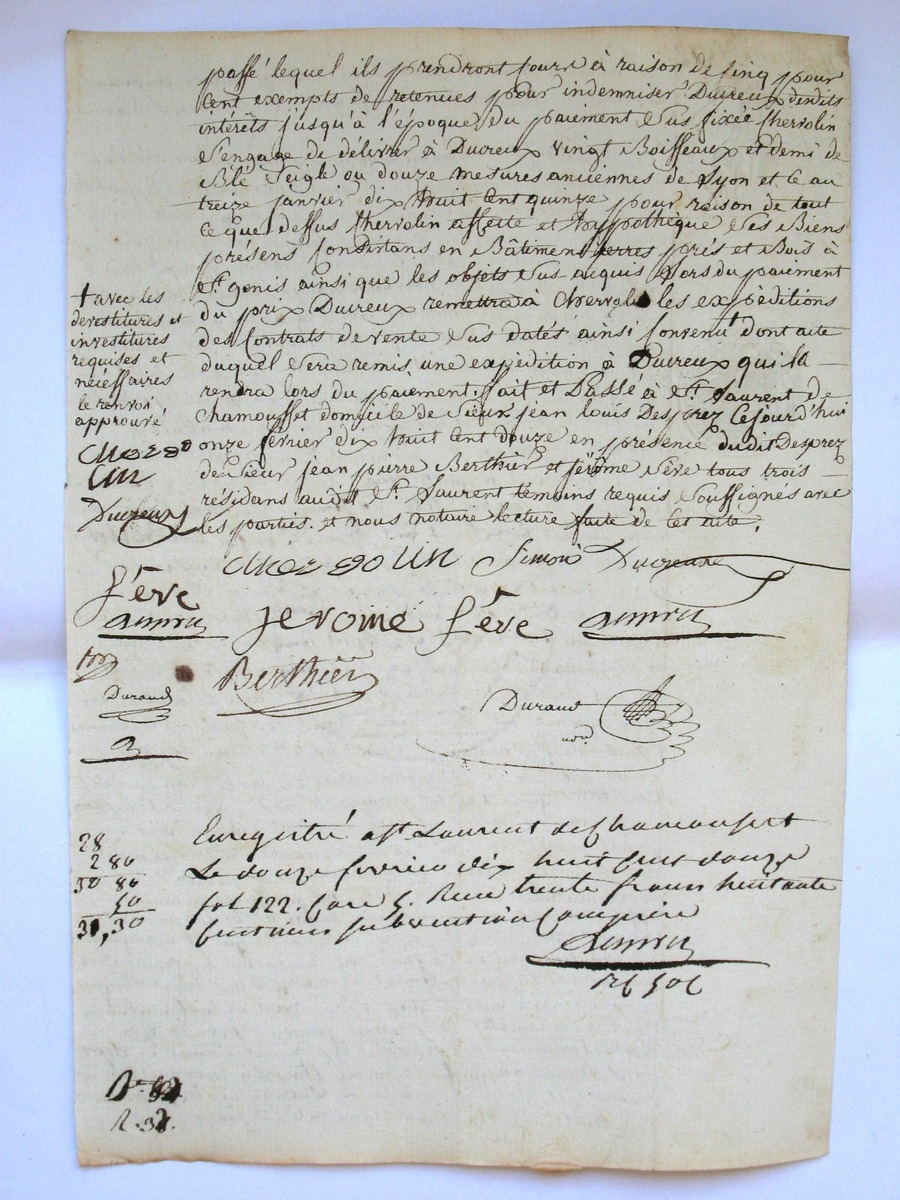 passé lequel ils prendront cours à raison de cinq pour
cent exempts de retenues pour indemniser Ducreux desdits
intérêts jusqu'à l'époque du paiement sus fixée Chervolin
s'engage de délivrer à Ducreux vingt Boisseaux et demi de
Blé seigle ou douze mesures anciennes de Lyon et ce au
treize janvier dix huit cent quinze pour raison de tout
ce que dessus Chervolin affecte et hypothèque ses Biens
présens consistans en Bâtimens terres prés et Bois à
St. genis ainsi que les objets sus acquis Lors du paiement
du prix Ducreux remettra à Chervolin les expéditions
des Contrats de vente sus datés ainsi Convenu † dont acte
duquel sera remis une expédition à Ducreux qui la
rendra lors du paiement. fait et Passé à St. Laurent de
Chamousset domicile de sieur jean louis Desprez Cejourd'hui
onze février dix huit cent douze en présence dudit Desprez
de sieur jean pierre Berthier et jérôme sève tous trois
résidans audit St. Laurent témoins requis soussignés avec
les parties. et nous notaire lecture faite de cet acte.
† avec les
devestitures et
investitures
requises et
nécessaires
le renvoi
approuvé
Chervo
lin
Ducreux
Chervolin Simon Ducreux
sève
jerome sève
Berthier
Durand
Durand
not.
Enregistré à St Laurent de Chamousset
Le douze fevrier dix huit cent douze
fol 122. Case 5. Recu trente francs huitante
centimes subvention comprise
28
2 80
30 80
50
31,30